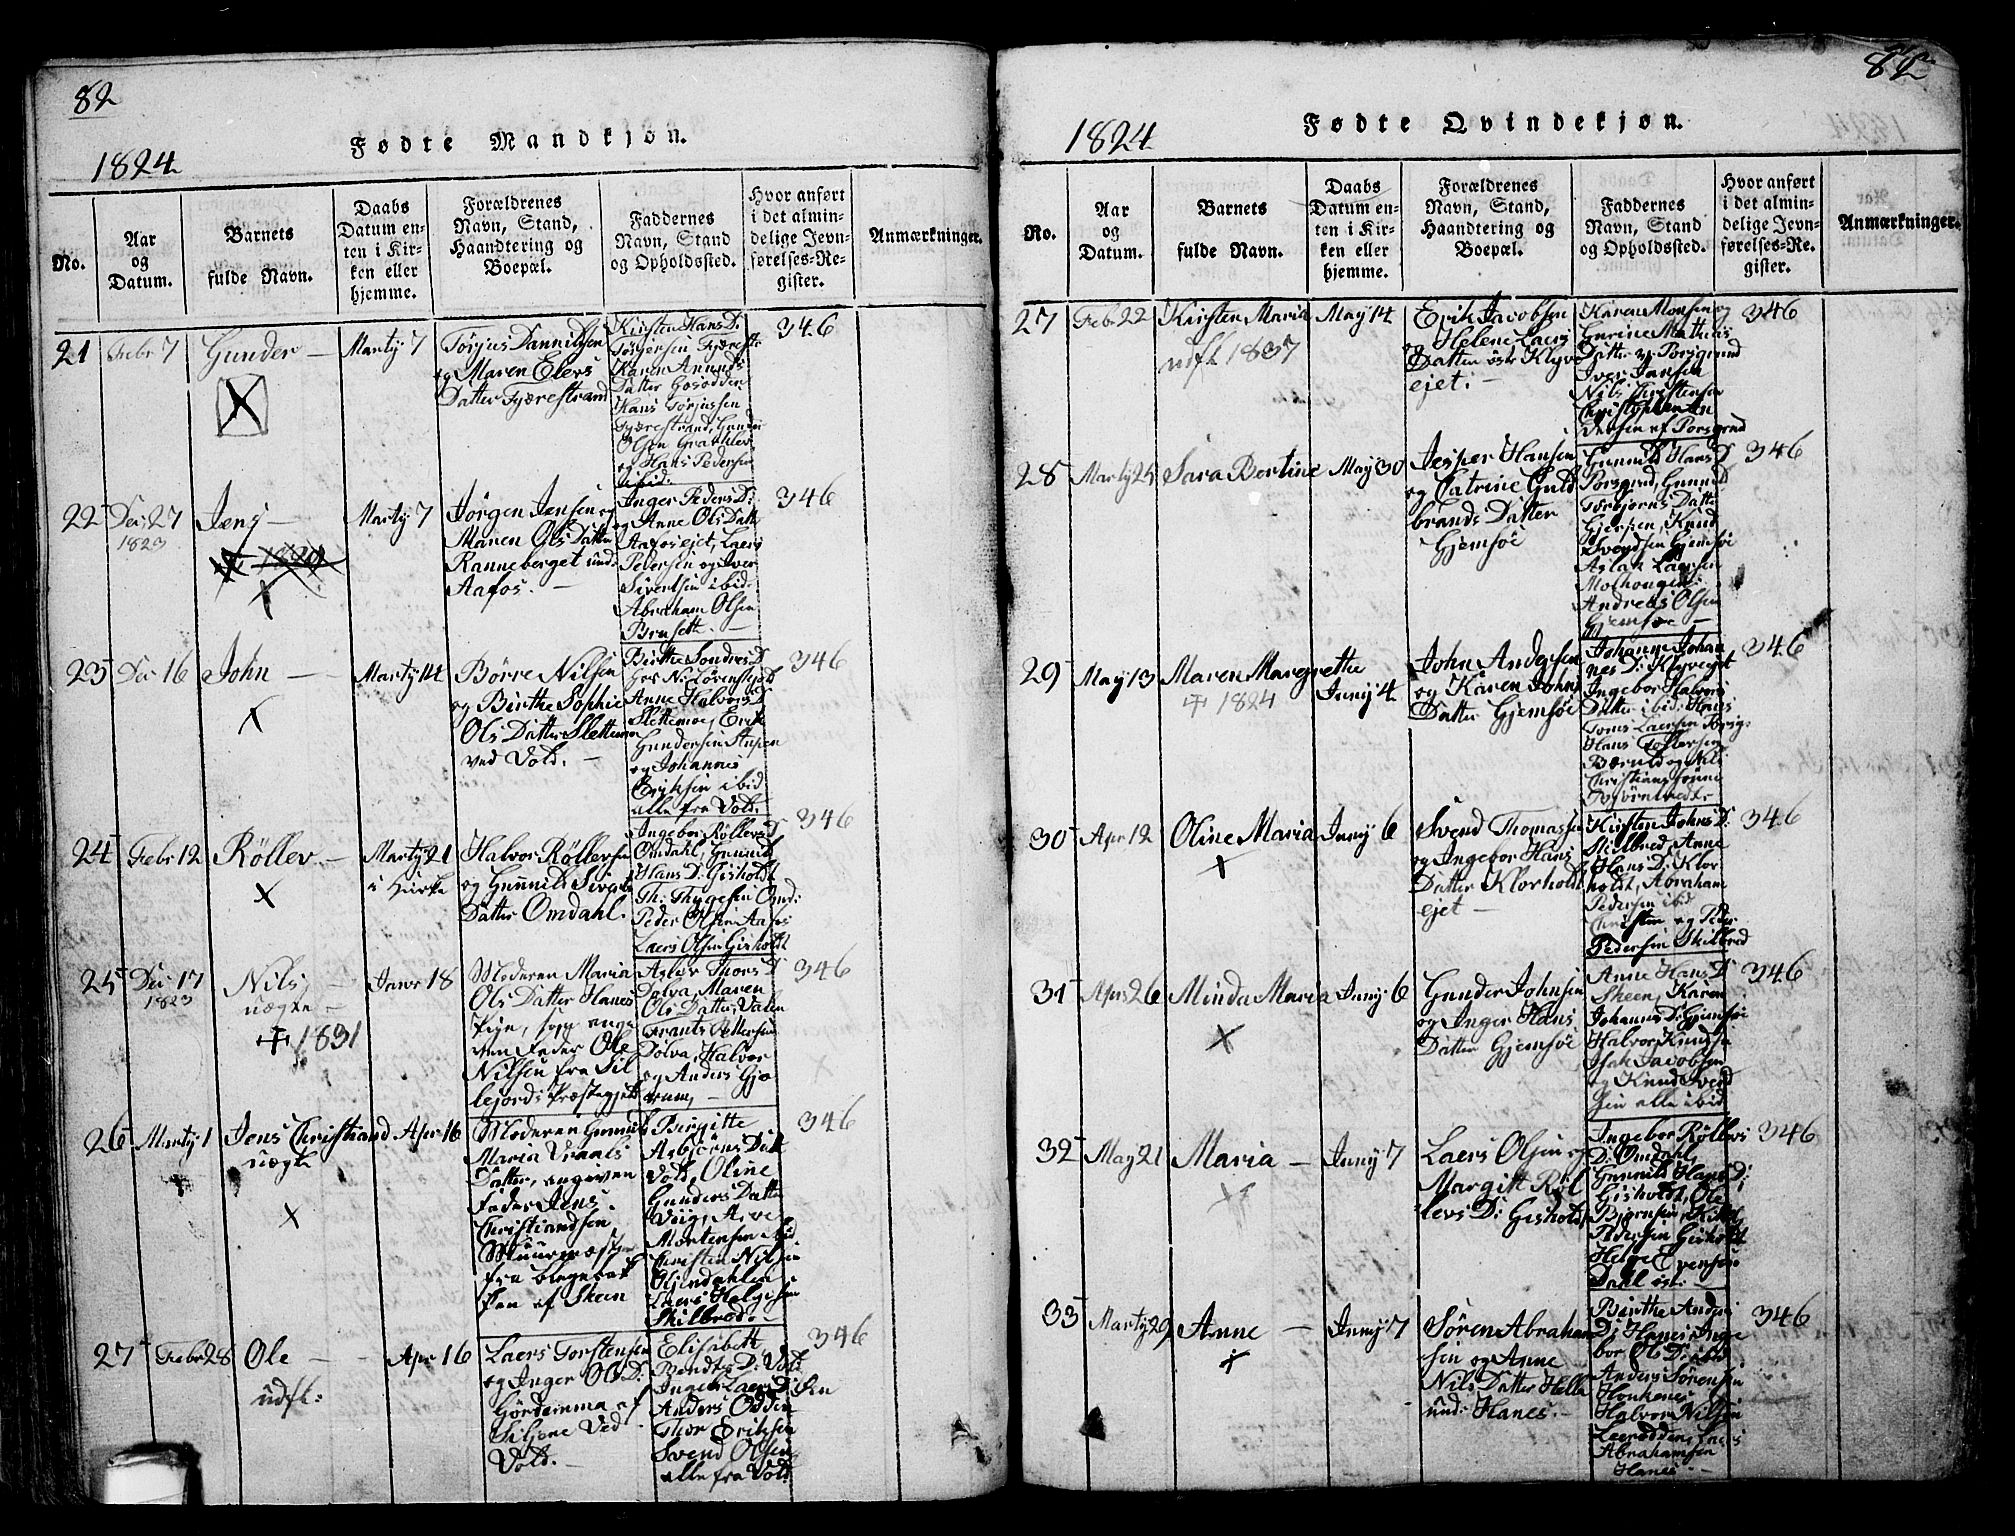 82
1824
Fødte Mandkjøn.
No.
Aar
og
Datum.
Barnets
fulde Navn.
Daabs
Datum en-
ten i Kir-
ken eller
hjemme.
Forældrenes
Navn, Stand,
Haandtering og
Boepæl.
Faddernes
Navn, Stand
og Opholdssted.
Hvor anført
i det almin-
delige Jevn-
førelses-Re-
gister.
Anmærkninger.
21
Febr 7
Gunder
Martÿ 7
Törjus Dannilsen
og Maren Elevs
Datter Fjærestrand
Kirsten Hans D:
Törjersen Fjærestr
Karen Amunds
Datter Gosodden
Hans Törjussen
Fjærestrand, Gunder
Olsen Grathlev
og Hans Pedersen
ibid:
346
22
Der 27
1823
Jens
Martÿ 7
Jörgen Jensen og
Maren Ols Datter
Ranneberget und:
Aafos.
Inger Peders D:
og Anne Ols Datt
Aafosejet, Laers
Pedersen og Iver
Sivertsen ibid:
Abraham Olsen
Brusett.
346
23
Der 16
John
Martÿ 14
Börre Nilsen
og Birthe Sophie
Ols Datter Slettemoe
ved Vold.
Birthe Sondres D
Anne Halvors D
Slettemoe, Erik
Gundersen
og Johannes
Eriksen ibid
alle fra Vold.
346
24
Febr 12
Röllev
Martÿ 21
i Kirke
Halvor Röllevsen
og Gunnild Siverts
Datter Omdahl.
Ingebor Röllevs D
Omdahl, Gunnild
Hans D: Gisholdt
Th: Thygesen Omd:
Peder Olsen Aafos
Laers Olsen Gisholdt
346
25
Der 17
1823
Nils
uægte
1831
Janr 18
Moderen Maria
Ols Datter Hanes
Pige, som angi
ven Fader Ole
Nilsen fra Sil
lejords Præstegjeld
Aslov Thors D
Dolva, Maren
Ols Datter,
Frants Pettersen
Dolva, Halvor
og Anders Gjæ
rum,
346
26
Martÿ 1
Jens Christiand
uægte
Apr 16
Moderen Gunnild
Maria Vraals
Datter, angiven
Fader Jens
Christiandsen
Muurmæster
fra
af Skeen
Birgitte
Asbiörns Datt
Vold, Oline
Gunders Datter
Viig, Arve
Mortensen ibid
Christen Nilsen
Hjendahlen
Laers Helgesen
Skilbred.
346
27
Febr 28
Ole
udfl:
Apr 16
Laers Torstensen
og Inger Ols D:
Gördemma af
Siljore Ved
Vold.
Elisabett
Bendts D: Vold
Ingebor Laers D:
Anders Odden
Thor Eriksen
Svend Olsen
alle fra Vold
346
82
1824
Fødte Qvindekjøn.
No.
Aar
og
Datum.
Barnets
fulde Navn.
Daabs
Datum en-
ten i Kir-
ken eller
hjemme.
Forældrenes
Navn, Stand,
Haandtering og
Boepæl.
Faddernes
Navn, Stand
og Opholdssted.
Hvor anført
i det almin-
delige Jevn-
førelses-Re-
gister.
Anmærkninger.
27
Febr 22
Kirsten Maria
udfl 1837
May 14
Erik Jacobsen
og Helene Laers
Datter östr Klyve
ejet.
Karen Monsen og
Gurine Mathias
Datter af Porsgrund
Iver Jansen
Nils Christensen
Christopher An
dersen af Porsgrund
346
28
Martÿ 25
Sara Bertine
May 30
Jesper Hansen
og Catrine Guld
brands Datter
Gjemsöe
Gunnild Hans D
Porsgrud, Gunnild
Torbjörns Datter
Gjerpen, Knud
Svendsen Gjemsöe
Aslak Laersen
Andreas Olsen
Gjemsöe
346
29
May 13
Maren Margrethe
1824
Junÿ 4
John Andersen
og Karen Johns
Datter Gjemsöe
Johanne Johan
nes D: Klyvejet
Ingebor Halvors
Datter ibid: Hans
Toms Laersen Porsg:
Hans Toftersen
Bæruld og Nils
Christiansen
346
30
Apr 12
Oline Maria
Junÿ 6
Svend Thomassen
og Ingebor Hans
Datter Klorholdt
ejet
Kirsten Johns D:
Skilbred, Anne
Hans D: Klor
holdt, Abraham
Pedersen ibid
Christen og Peder
Pedersen Skilbred
346
31
Apr 26
Minda Maria
Junÿ 6
Gunder Johnsen
og Inger Hans
Datter Gjemsöe
Anne Hans D
Skeen, Karen
Johannes D: Gjemsöe
Halvor Knudsen
Isak Jacobsen
og Knud Svend
sen alle ibid
346
32
May 21
Maria
Junÿ 7
Laers Olsen og
Margitt Röl
levs D: Gisholdt
Ingebor Röllevs
D: Omdahl,
Gunnild Hans D:
Gisholdt, Ole
Bjornsen, Kittel
Pedersen Gisholdt
Helge Evensen
Dahl östr
346
33
Martÿ 29
Anne
Junÿ 7
Sören Abraham
sen og Anne
Nils Datter Hella
und: Hanes.
Birthe Anders
D: Hanes, Inge
bor Ols D: ibid
Anders Sörensen
Honhanes
Halvor Nilsen
Leerodden, Laers
Abrahamsen
Hanes
346